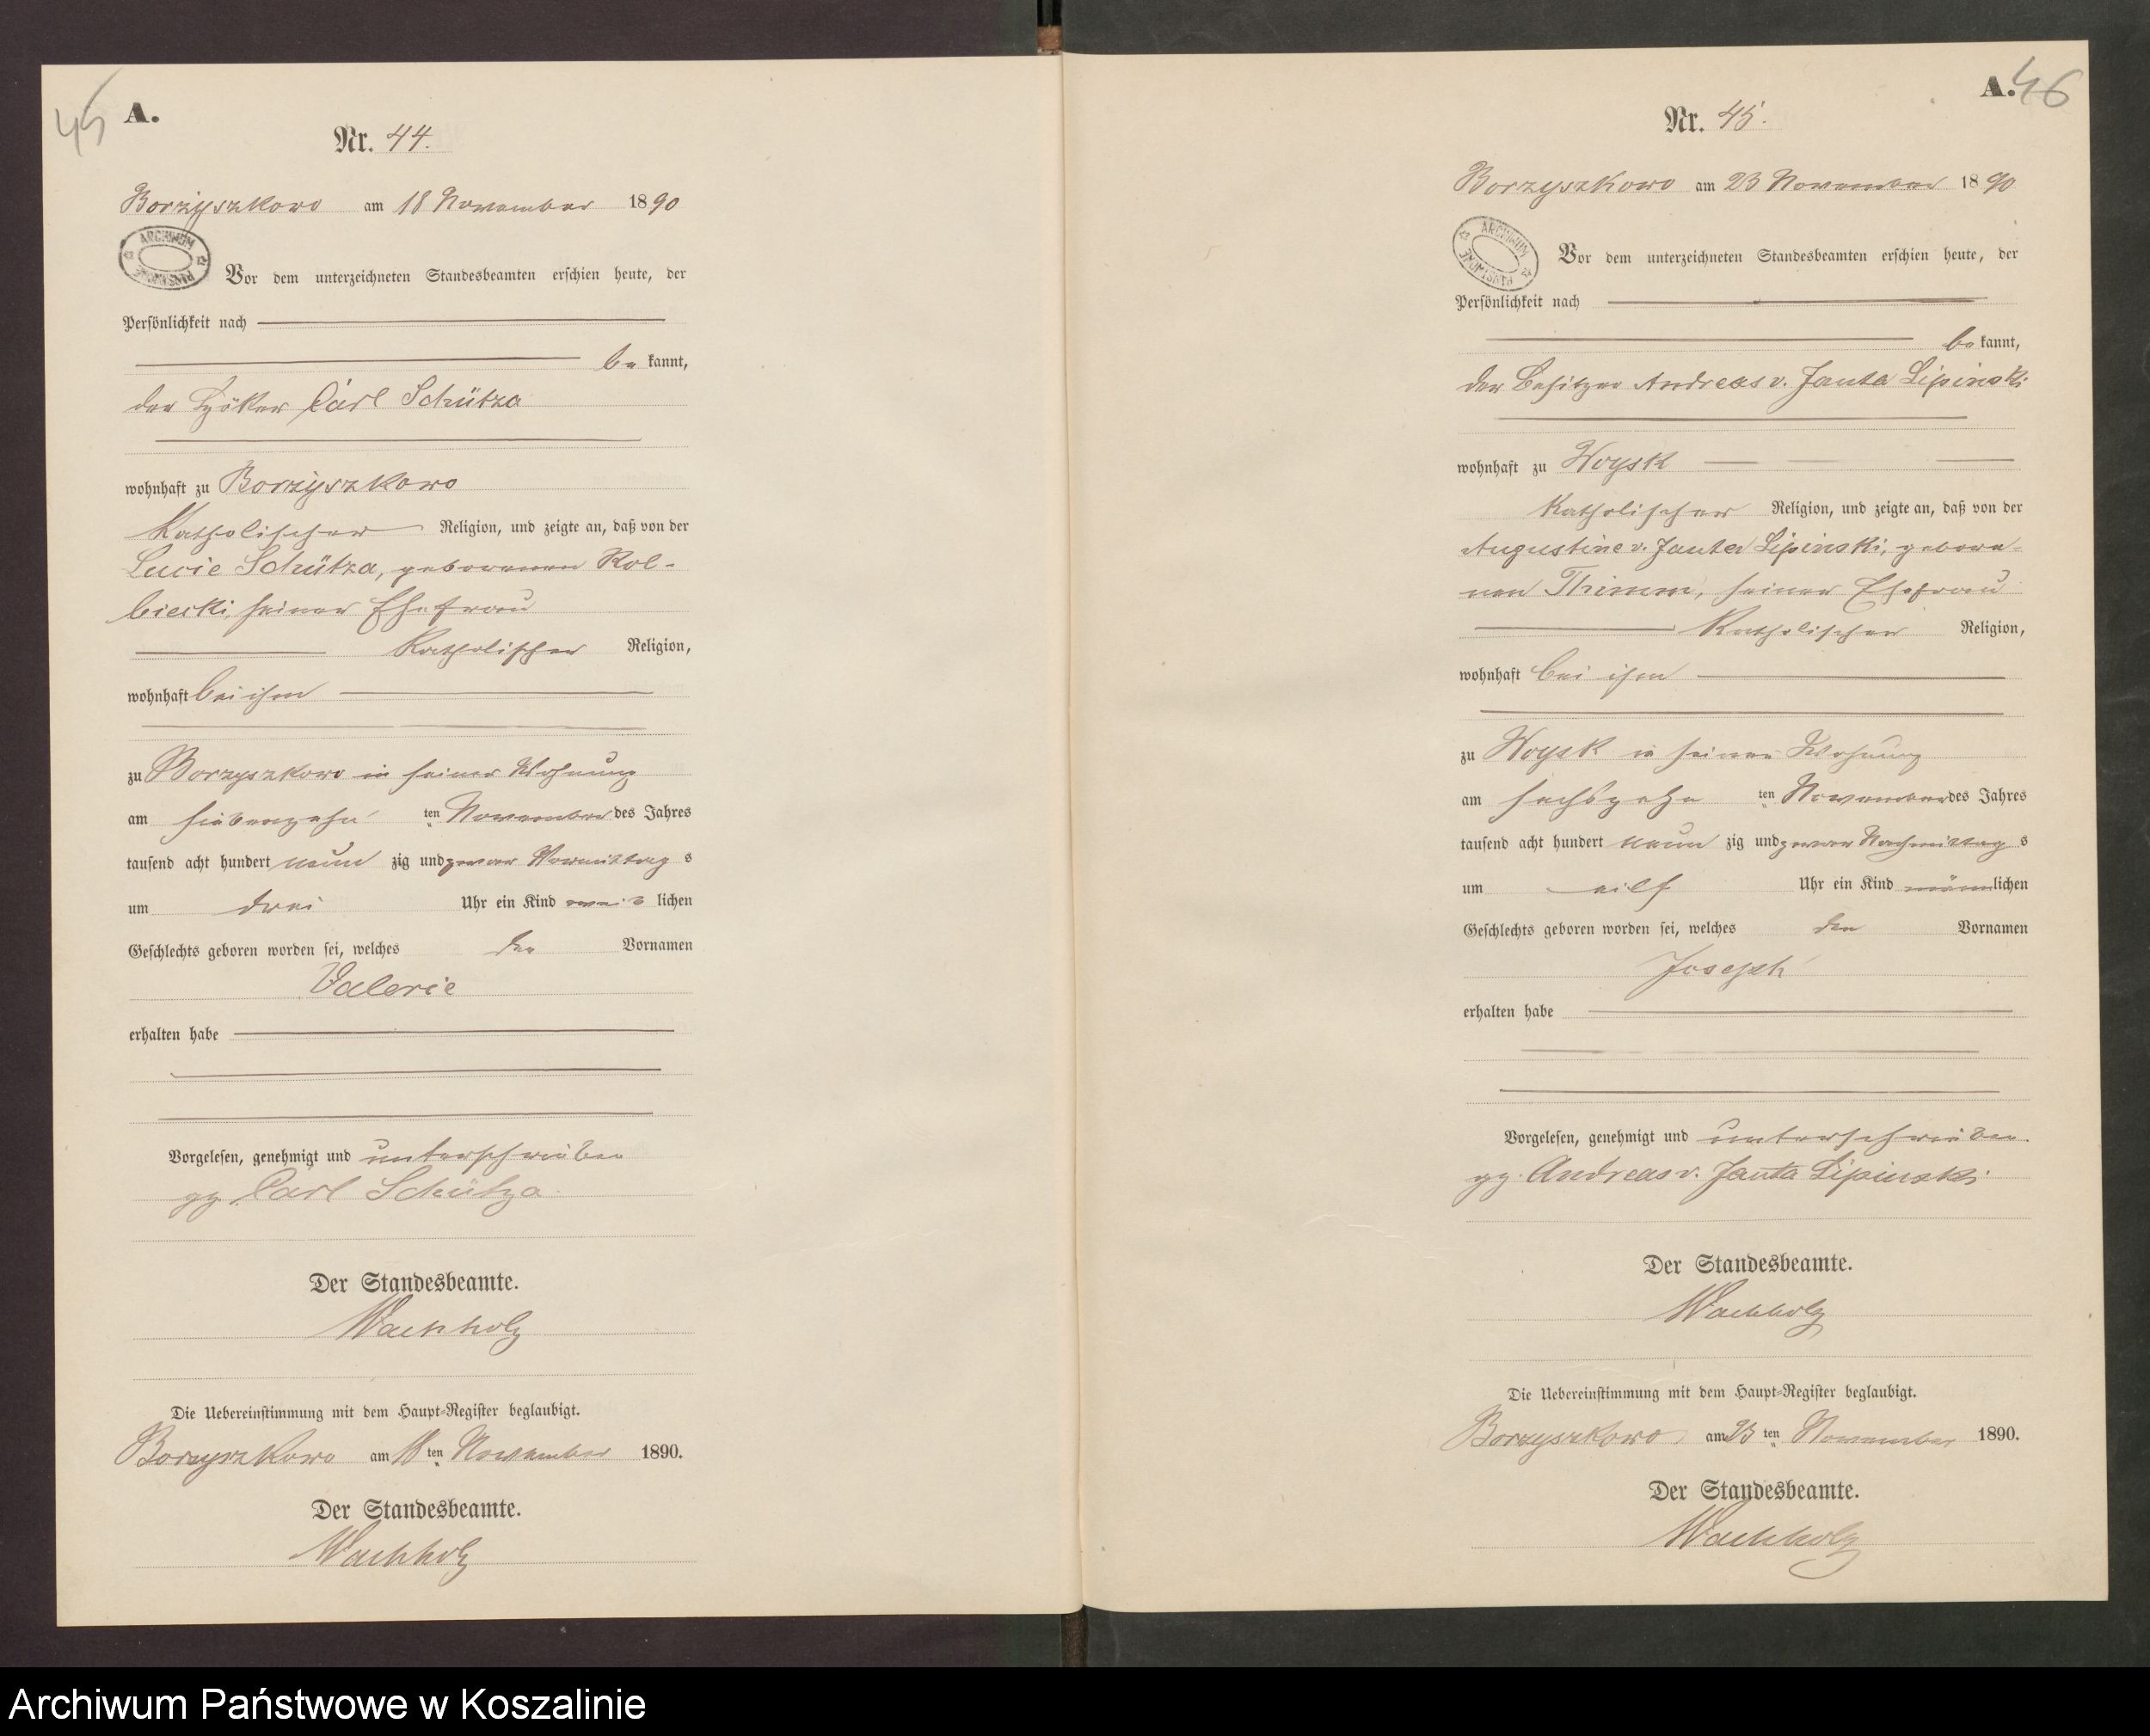 45
A.
Nr. 44.
Borzyszkowo am 18 November 1890
ARCHIWUM PAŃSTWOWE
Vor dem unterzeichneten Standesbeamten erschien heute, der
Persönlichkeit nach
bekannt,
der Höker Carl Schütza
wohnhaft zu Borzyszkowo
Katholischer Religion, und zeigte an, daß von der
Lucie Schütza, geborenen Kol-
biecki, seiner Ehefrau
Katholischer Religion,
wohnhaft bei ihm
zu Borzyszkowo in seiner Wohnung
am siebenzehnten November des Jahres
tausend acht hundert neunzig und zwar Vormittags
um drei Uhr ein Kind weiblichen
Geschlechts geboren worden sei, welches den Vornamen
Valerie
erhalten habe
Vorgelesen, genehmigt und unterschrieben
gz. Carl Schütza.
Der Standesbeamte.
Wachholz
Die Uebereinstimmung mit dem Haupt-Register beglaubigt.
Borzyszkowo am 18ten November 1890.
Der Standesbeamte.
Wachholz
A. 46
Nr. 45.
Borzyszkowo am 23 November 1890
ARCHIWUM PAŃSTWOWE
Vor dem unterzeichneten Standesbeamten erschien heute, der
Persönlichkeit nach
bekannt,
der Besitzer Andreas v. Janta Lipinski
wohnhaft zu Woysk
Katholischer Religion, und zeigte an, daß von der
Augustine v. Janta Lipinski, gebore-
nen Thimm, seiner Ehefrau
Katholischer Religion,
wohnhaft bei ihm
zu Woysk in seiner Wohnung
am sechszehnten November des Jahres
tausend acht hundert neunzig und zwar Nachmittags
um eilf Uhr ein Kind männlichen
Geschlechts geboren worden sei, welches den Vornamen
Joseph
erhalten habe
Vorgelesen, genehmigt und unterschrieben.
gz. Andreas v. Janta Lipinski
Der Standesbeamte.
Wachholz
Die Uebereinstimmung mit dem Haupt-Register beglaubigt.
Borzyszkowo, am 23ten November 1890.
Der Standesbeamte.
Wachholz
Archiwum Państwowe w Koszalinie